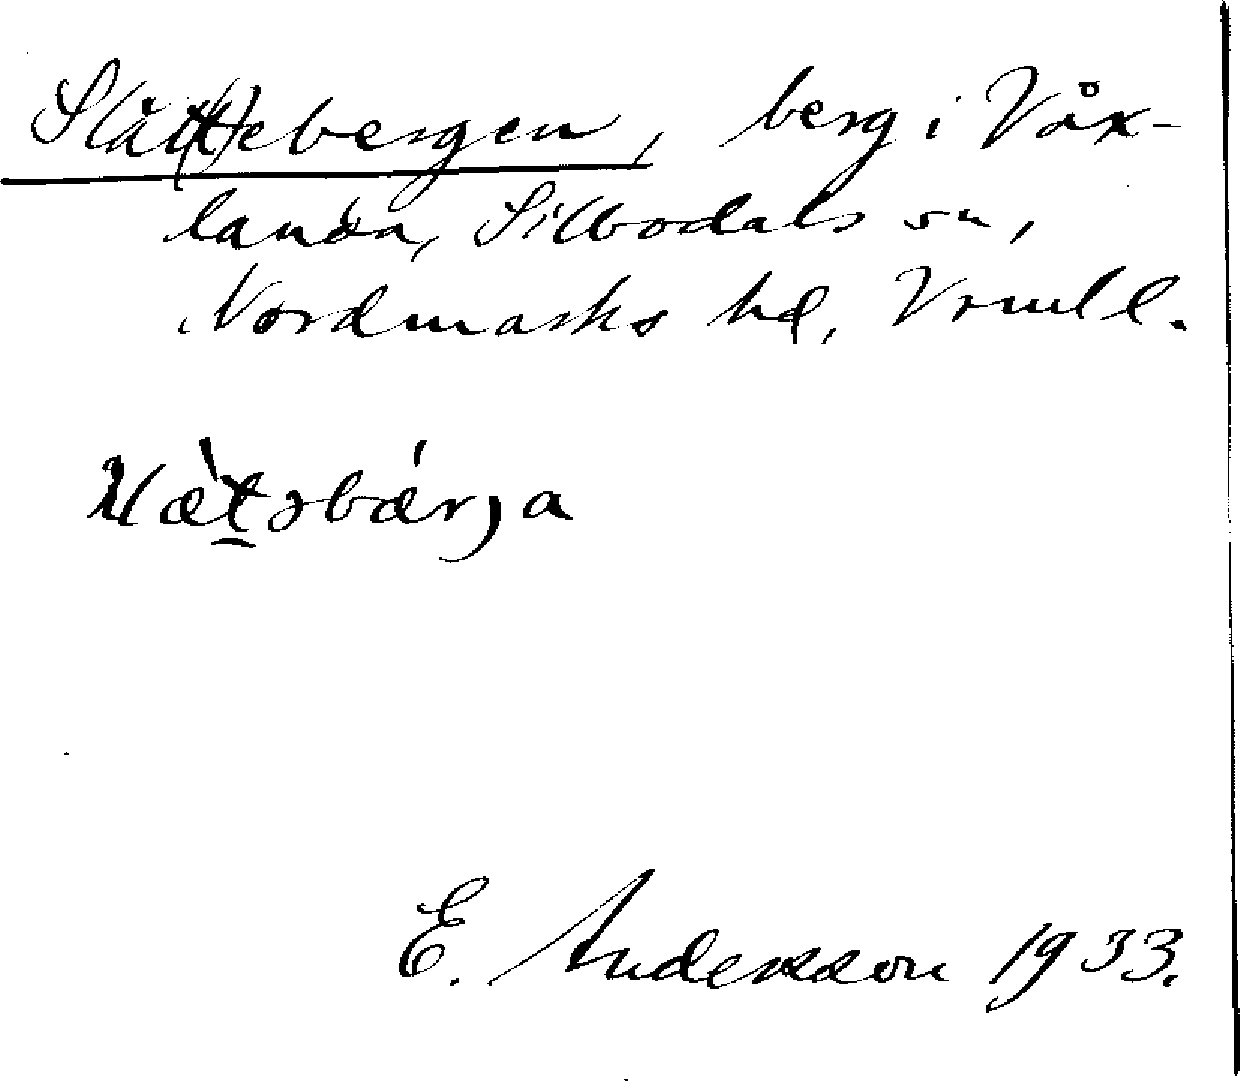 Slåt(t)ebergen, berg i Våx-
landa, Silbodals sn,
Nordmarks hd, Vrml l.
E. Andersson 1933.